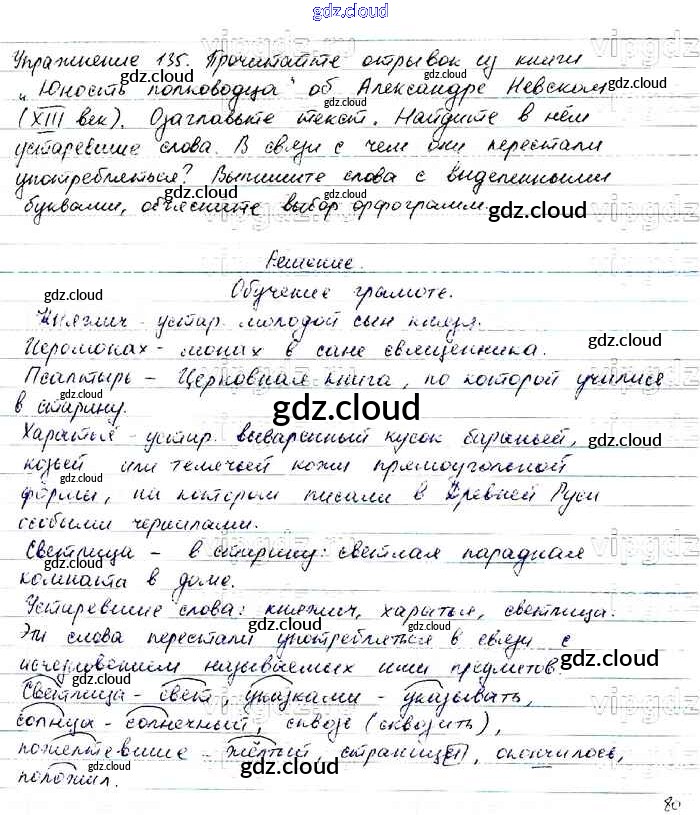 gdz.cloud
Упражнение 135. Прочитайте отрывок из книги
„Юность полководца" об Александре Невском
(XIII век). Озаглавьте текст. Найдите в нём
устаревшие слова. В связи с чем они перестали
употребляться? Выпишите слова с выделенными
буквами, объясните выбор орфограмм.
gdz.cloud
Решение.
gdz.cloud
Обучение грамоте.
Княжич - устар. молодой сын князя.
Иеромонах - монах в сане священника.
Псалтырь - Церковная книга, по которой учились
в старину.
gdz.cloud
Харатья - устар. вываренный кусок бараньей,
козьей или телячьей кожи прямоугольной
формы, на котором писали в Древней Руси
особыми чернилами.
Светлица - в старину: светлая парадная
комната в доме.
Устаревшие слова: княжич, харатья, светлица.
Эти слова перестали употребляться в связи с
исчезновением называемых ими предметов.
gdz.cloud
Светлица - свет, указками - указывать,
солнца - солнечный, сквозь (сквозить),
пожелтевшие - жёлтый, страницы, окончилось,
положил.
gdz.cloud
80